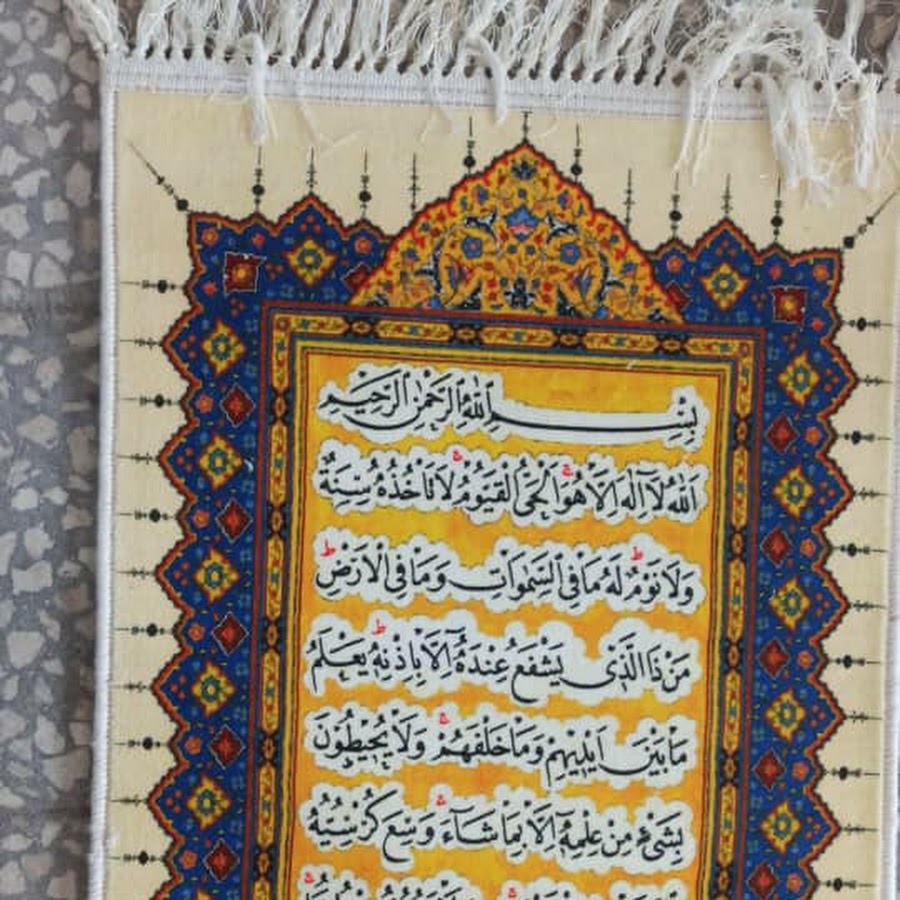 بِسْمِ اللّٰهِ الرَّحْمٰنِ الرَّحِيمِ
اَللّٰهُ لَآ اِلٰهَ اِلَّا هُوَ ۚ اَلْحَىُّ الْقَيُّومُ ۚ لَا تَأْخُذُهُ سِنَةٌ
وَلَا نَوْمٌ ۜ لَهُ مَا فِى السَّمٰوَاتِ وَمَا فِى الْاَرْضِ ۜ
مَنْ ذَا الَّذِى يَشْفَعُ عِنْدَهُٓ اِلَّا بِاِذْنِهِ ۜ يَعْلَمُ
مَا بَيْنَ اَيْدِيهِمْ وَمَا خَلْفَهُمْ ۚ وَلَا يُحِيطُونَ
بِشَىْءٍ مِنْ عِلْمِهِٓ اِلَّا بِمَا شَآءَ ۚ وَسِعَ كُرْسِيُّهُ